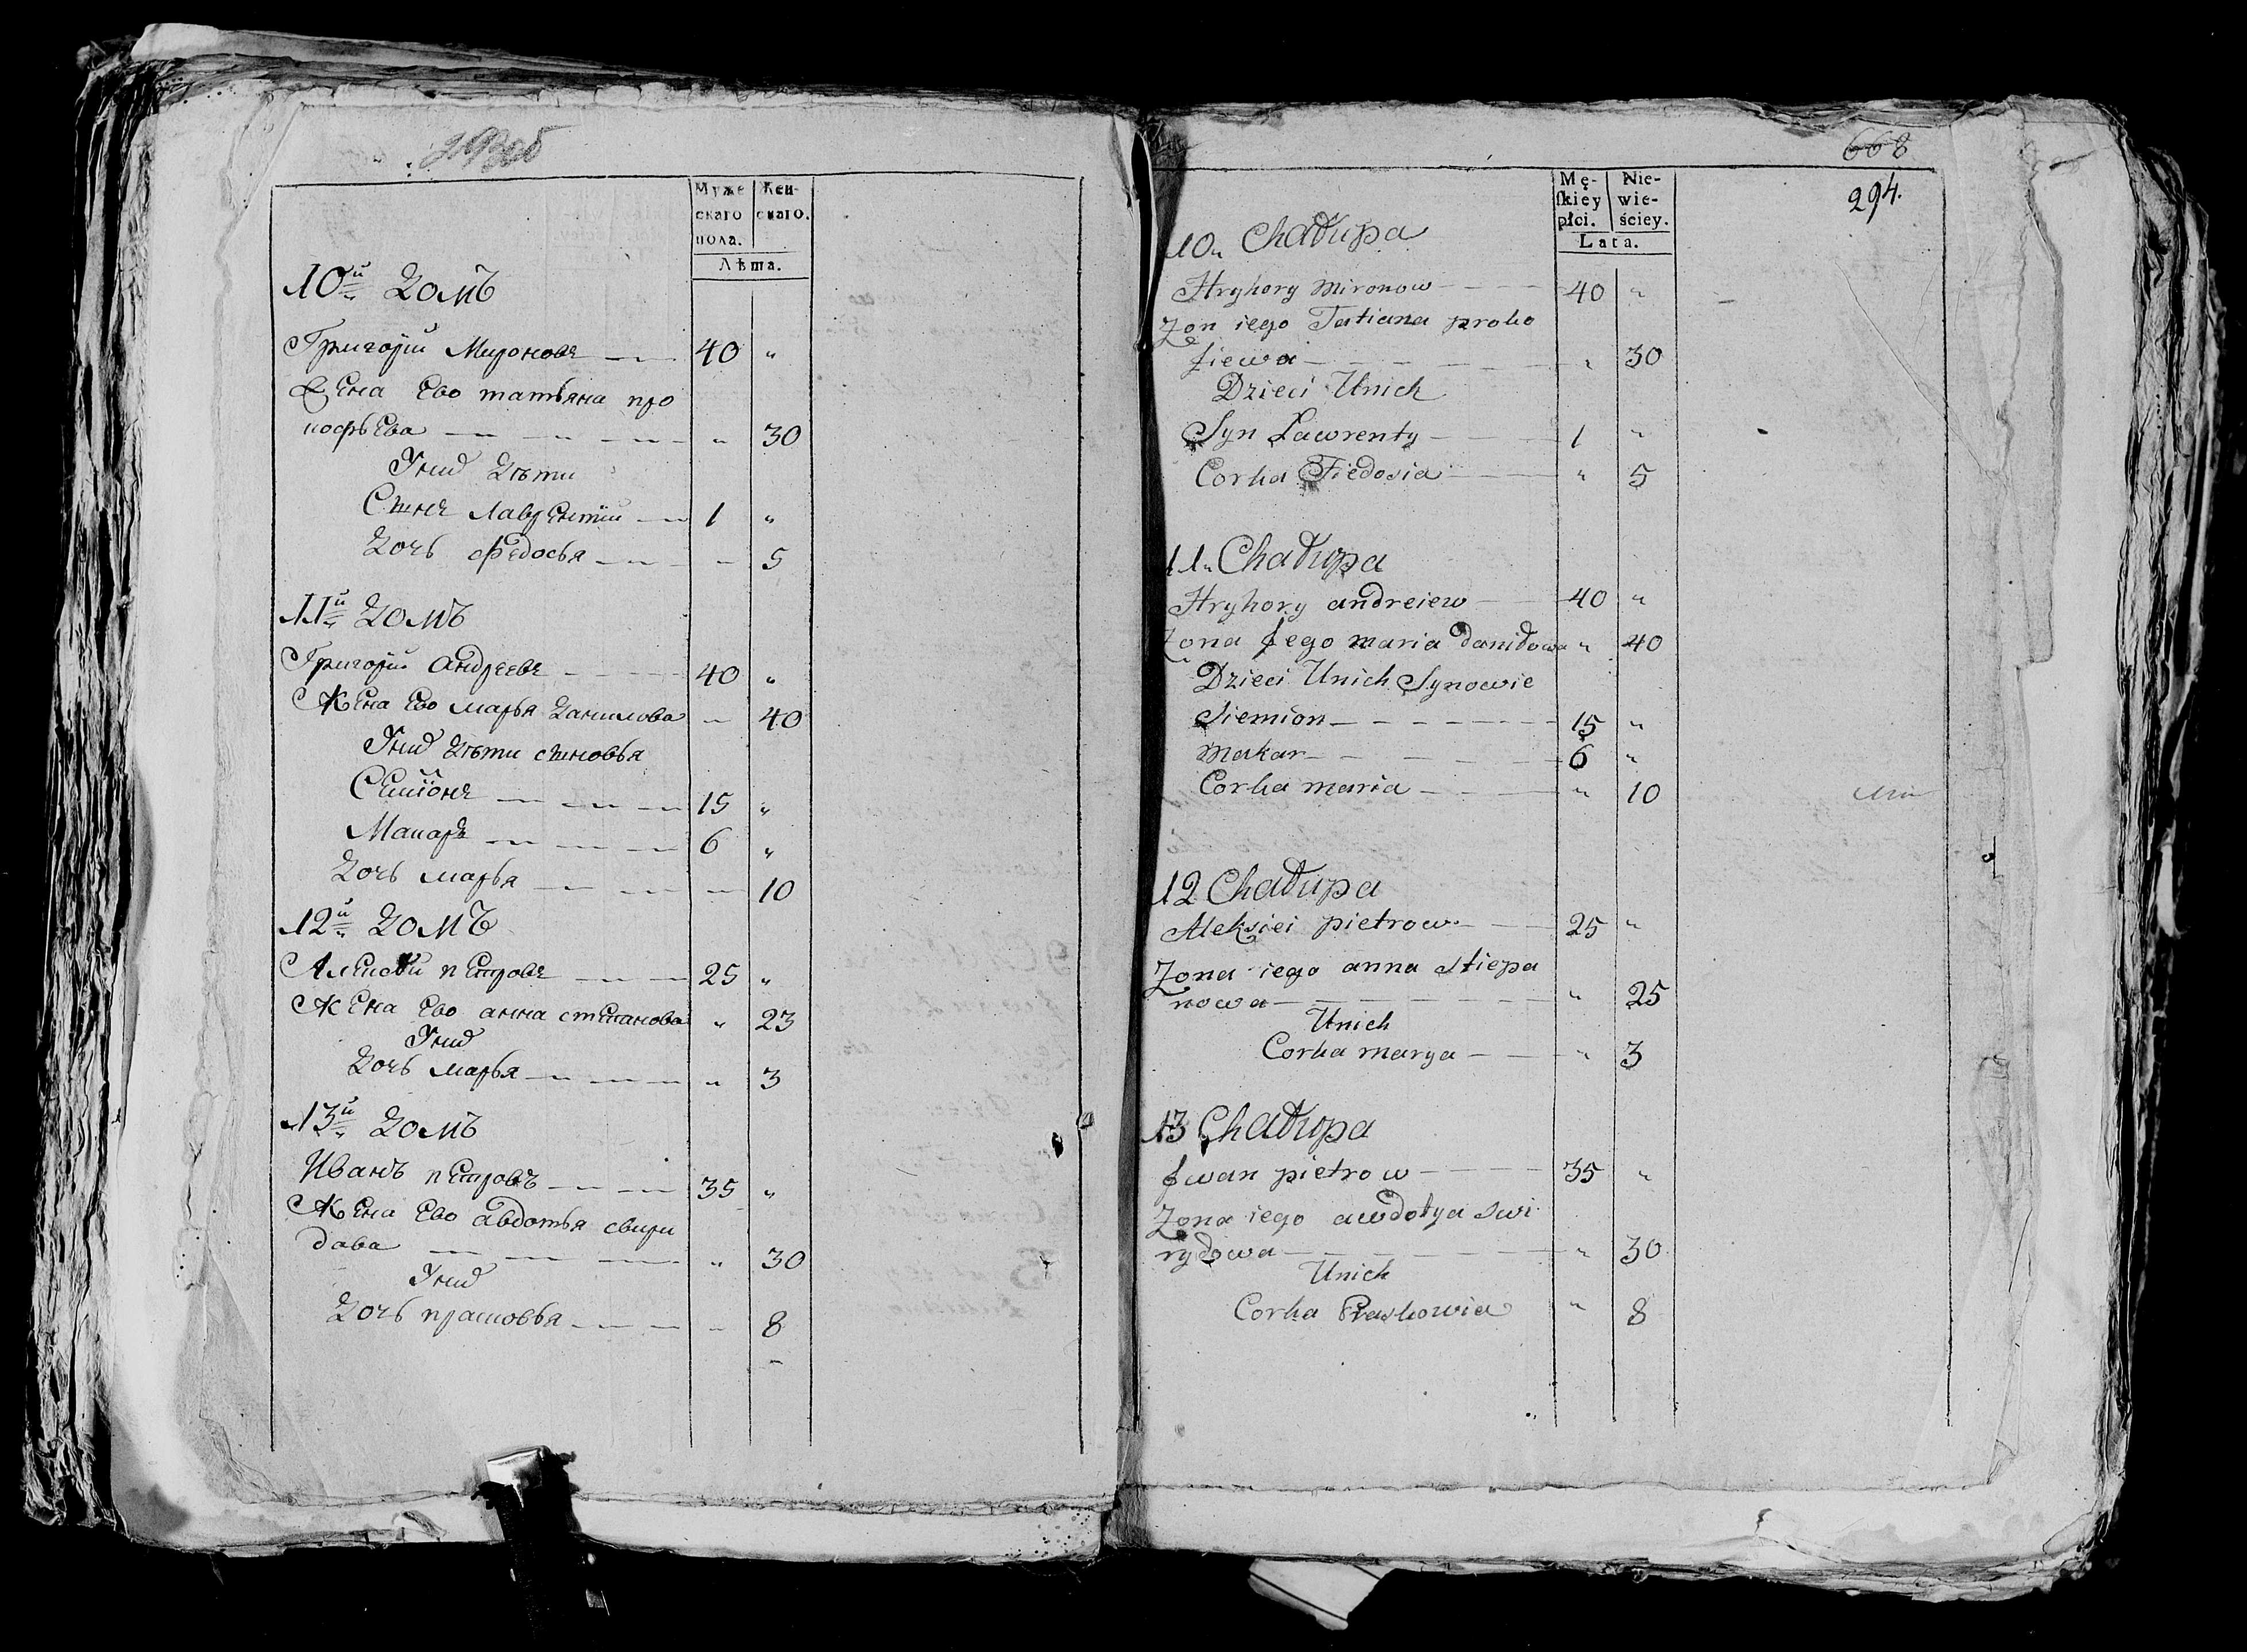 Муже Жен-
скаго скаго.
пола.
Лѣта.
10й домъ
Григорий Мироновъ 40 „
Жена Ево татьяна про
кофьева „ 30
Унихъ дѣти
Сынъ лаврентий 1 „
дочь федосья 5
11й домъ
Григорий андреевъ 40 „
Жена Ево марья данилова 40
Унихъ дѣти сыновья
Семионъ 15 „
Макаръ 6 „
дочь марья 10
12й домъ
Алексей петровъ 25 „
Жена Ево анна степанова „ 23
Унихъ
дочь марья „ 3
13й домъ
Иванъ петровъ 35 „
Жена Ево авдотья свири
дава „ 30
Унихъ
дочь прасковья 8
668
294.
Mę- Nie-
ſkiey wie-
płci. ściey.
Lata.
10„ Chałupa
Hryhory Mironow 40 „
Zon iego Tatiana proko
fiewa „ 30
Dzieci Unich
Syn Ławrenty 1 „
Corka Fiedosia „ 5
11„ Chałupa
Hryhory andreiew 40 „
Zona Jego maria daniłowa „ 40
Dzieci Unich Synowie
Siemion 15 „
Makar 6 „
Corka maria „ 10
12 Chałupa
Aleksiei pietrow 25 „
Zona iego anna Stiepa
nowa „ 25
Unich
Corka marya „ 3
13 Chałupa
Jwan pietrow 35 „
Zona iego awdotya Swi
rydowa „ 30
Unich
Corka Praskowia „ 8